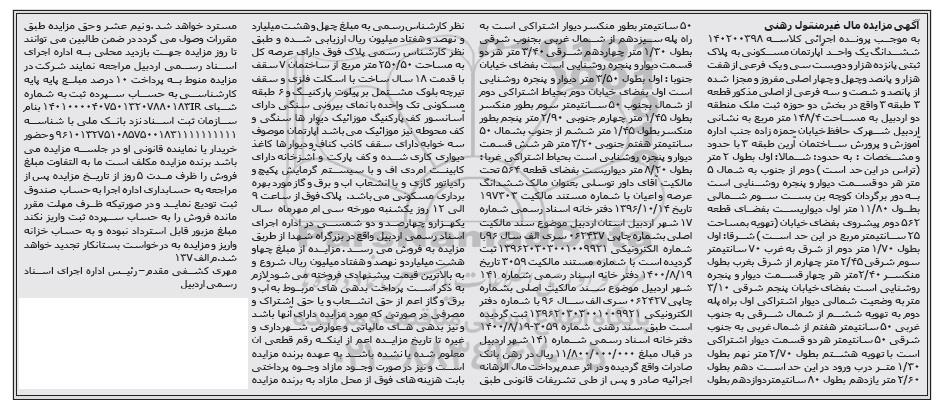 آگهی مزایده مال غیرمنقول رهنی
به موجب پرونده اجرائی کلاسه ۱۴۰۲۰۰۳۹۸
ششدانگ یک واحد آپارتمان مسکونی به پلاک
ثبتی پانزده هزار و دویست سی و یک فرعی از هفت
هزار و پانصد وچهل و چهار اصلی مفروز و مجزا شده
از پانصد و شصت و سه فرعی از اصلی مذکور قطعه
۳ طبقه ۳ واقع در بخش دو حوزه ثبت ملک منطقه
دو اردبیل به مساحت ۱۴۸/۴ متر مربع به نشانی
اردبیل شهرک حافظ خیابان حمزه زاده جنب اداره
آموزش و پرورش ساختمان آرین طبقه ۳ با حدود
و مشخصات : به حدود: شمالا: اول بطول ۲ متر
(تراس در این حد است ) دوم از جنوب به شمال ۵
متر هر دو قسمت دیوار و پنجره روشنایی است
به دور برگردان کوچه بن بست سوم شمالی
بطول ۱۱/۸۰ متر اول دیواریست بفضای قطعه
۵۶۲ دوم پیشروی بفضای خیابان (تهویه بمساحت
۲۵ سانتیمتر مربع در این حد است ) شرقا: اول
بطول ۱/۷۰ متر دوم از شرق به غرب ۷۰ سانتیمتر
سوم شرقی ۲/۴۵ متر چهارم از شرق بغرب بطول
منکسر ۲/۴۰متر هر چهار قسمت دیوار و پنجره
روشنایی است بفضای خیابان پنجم شرقی ۳/۱۰
متر به وضعیت شمالی دیوار اشتراکی اول براه پله
دوم به تهویه ششم از شمال شرقی به جنوب
غربی ۵۰ سانتیمتر هفتم از شمال غربی به جنوب
شرقی ۵۰ سانتیمتر هر دو قسمت دیوار اشتراکی
است با تهویه هشتم بطول ۲/۷۰ متر نهم بطول
۱/۳۰ متر درب ورود در این حد است دهم بطول
۲/۶۰ متر یازدهم بطول ۸۰ سانتیمتر دوازدهم بطول
۵۰ سانتیمتر بطور منکسر دیوار اشتراکی است به
راه پله سیزدهم از شمال غربی بجنوب شرقی
بطول ۱/۳۰ متر چهاردهم شرقی ۳/۴۰ متر هر دو
قسمت دیوار و پنجره روشنایی است بفضای خیابان
جنوبا : اول بطول ۳/۵۰ متر دیوار و پنجره روشنایی
است اول بفضای خیابان دوم بحیاط اشتراکی دوم
از شمال بجنوب ۵۰ سانتیمتر سوم بطور منکسر
بطول ۱/۴۵ متر چهارم جنوبی ۲/۹۰ متر پنجم بطور
منکسر بطول ۱/۴۵ متر ششم از جنوب بشمال ۵۰
سانتیمتر هفتم جنوبی ۳/۲۰ متر هر شش قسمت
دیوار و پنجره روشنایی است بحیاط اشتراکی غربا :
بطول ۸/۲۰ متر دیواریست بفضای قطعه ۵۶۴ تحت
مالکیت آقای داور توسلی بعنوان مالک ششدانگ
عرصه و اعیان با شماره مستند مالکیت ۱۹۷۳۰۳
تاریخ ۱۳۹۶/۱۰/۱۴ دفتر خانه اسناد رسمی شماره
۱۷ شهر اردبیل استان اردبیل موضوع سند مالکیت
اصلی بشماره چاپی ۰۶۲۴۳۷ سری الف سال ۹۶با
شماره الکترونیکی ۱۳۹۶۲۰۳۰۳۰۰۱۰۰۹۹۲۱ ثبت
گردیده است با شماره مستند مالکیت ۳۰۵۹ تاریخ
۱۴۰۰/۸/۱۹ دفتر خانه اسناد رسمی شماره ۱۴۱
شهر اردبیل موضوع سند مالکیت اصلی بشماره
چاپی ۰۶۲۴۳۷ سری الف سال ۹۶ با شماره دفتر
الکترونیکی ۱۳۹۶۲۰۳۰۳۰۰۱۰۰۹۹۲۱ ثبت گردیده
است طبق سند رهنی شماره ۳۰۵۹-۱۴۰۰/۸/۱۹
دفتر خانه اسناد رسمی شماره ۱۴۱ شهر اردبیل
در قبال مبلغ ۱۱/۸۰۰/۰۰۰/۰۰۰ ریال در رهن بانک
صادرات واقع گردیده و در اثر عدم پرداخت مال الرهانه
اجرائیه صادر و پس از طی تشریفات قانونی طبق
نظر کارشناس رسمی به مبلغ چهل و هشت میلیارد
و نهصد و هفتاد میلیون ریال ارزیابی شده و طبق
نظر کارشناس رسمی پلاک فوق دارای عرصه کل
به مساحت ۲۵۰/۵۰ متر مربع از ساختمان ۷ سقف
با قدمت ۱۸ سال ساخت با اسکلت فلزی و سقف
تیرچه بلوک مشتمل بر پیلوت پارکینگ و ۶ طبقه
مسکونی تک واحده با نمای بیرونی سنگی دارای
آسانسور کف پارکینگ موزائیک دیوار ها سنگی و
کف محوطه نیز موزائیک می باشد آپارتمان موصوف
سه خوابه دارای سقف کاذب کناف و دیوار ها کاغذ
دیواری کاری شده و کف پارکت و آشپزخانه دارای
کابینت ام‌دی اف و با سیستم گرمایش پکیج و
رادیاتور گازی و با انشعاب آب و برق و گاز مورد بهره
برداری مسکونی می باشد، پلاک فوق از ساعت ۹
الی ۱۲ روز یکشنبه مورخه سی ام مهرماه سال
یکهزار و چهارصد و دو شمسی در اداره اجرای
اسناد رسمی اردبیل واقع در بزرگراه شهدا از طریق
مزایده به فروش می رسد . مزایده از مبلغ چهل و
هشت میلیارد و نهصد و هفتاد میلیون ریال شروع و
به بالاترین قیمت پیشنهادی فروخته می شود لازم
به ذکر است پرداخت بدهی های مربوط به آب و
برق و گاز اعم از حق انشعاب و یا حق اشتراک و
مصرفی در صورتی که مورد مزایده دارای آنها باشد
و نیز بدهی های مالیاتی و عوارض شهرداری و
غیره تا تاریخ مزایده اعم از اینکه رقم قطعی آن
معلوم شده یا نشده باشد به عهده برنده مزایده
است و نیز در صورت وجود مازاد وجوه پرداختی
بابت هزینه های فوق از محل مازاد به برنده مزایده
مسترد خواهد شد .ونیم عشر و حق مزایده طبق
مقررات وصول می گردد در ضمن طالبین می توانند
تا روز مزایده جهت بازدید محلی به اداره اجرای
اسناد رسمی اردبیل مراجعه نمایند شرکت در
مزایده منوط به پرداخت ۱۰ درصد مبلغ پایه پایه
کارشناسی به حساب سپرده ثبت به شماره
شبای
سازمان ثبت اسناد نزد بانک ملی با شناسه
و حضور
خریدار یا نماینده قانونی او در جلسه مزایده می
باشد برنده مزایده مکلف است ما به التفاوت مبلغ
فروش را ظرف مدت ۵ روز از تاریخ مزایده پس از
مراجعه به حسابداری اداره اجرا به حساب صندوق
ثبت تودیع نماید و در صورتیکه ظرف مهلت مقرر
مانده فروش را به حساب سپرده ثبت واریز نکند
مبلغ مزبور قابل استرداد نبوده و به حساب خزانه
واریز و مزایده به درخواست بستانکار تجدید خواهد
شد.م الف ۱۳۷
مهری کشفی مقدم –رئیس اداره اجرای اسناد
رسمی اردبیل